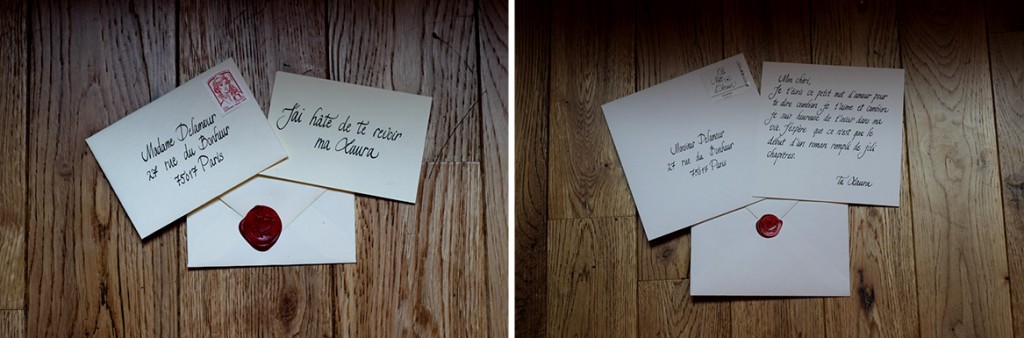 Madame Delamour
27 rue du Bonheur
75017 Paris
J'ai hâte de te revoir
ma Laura
Monsieur Delamour
27 rue du Bonheur
75017 Paris
Mon chéri,
Je t'écris ce petit mot d'amour pour
te dire combien je t'aime et combien
je suis heureuse de t'avoir dans ma
vie. J'espère que ce n'est que le
début d'un roman rempli de jolis
chapitres.
Ta Laura